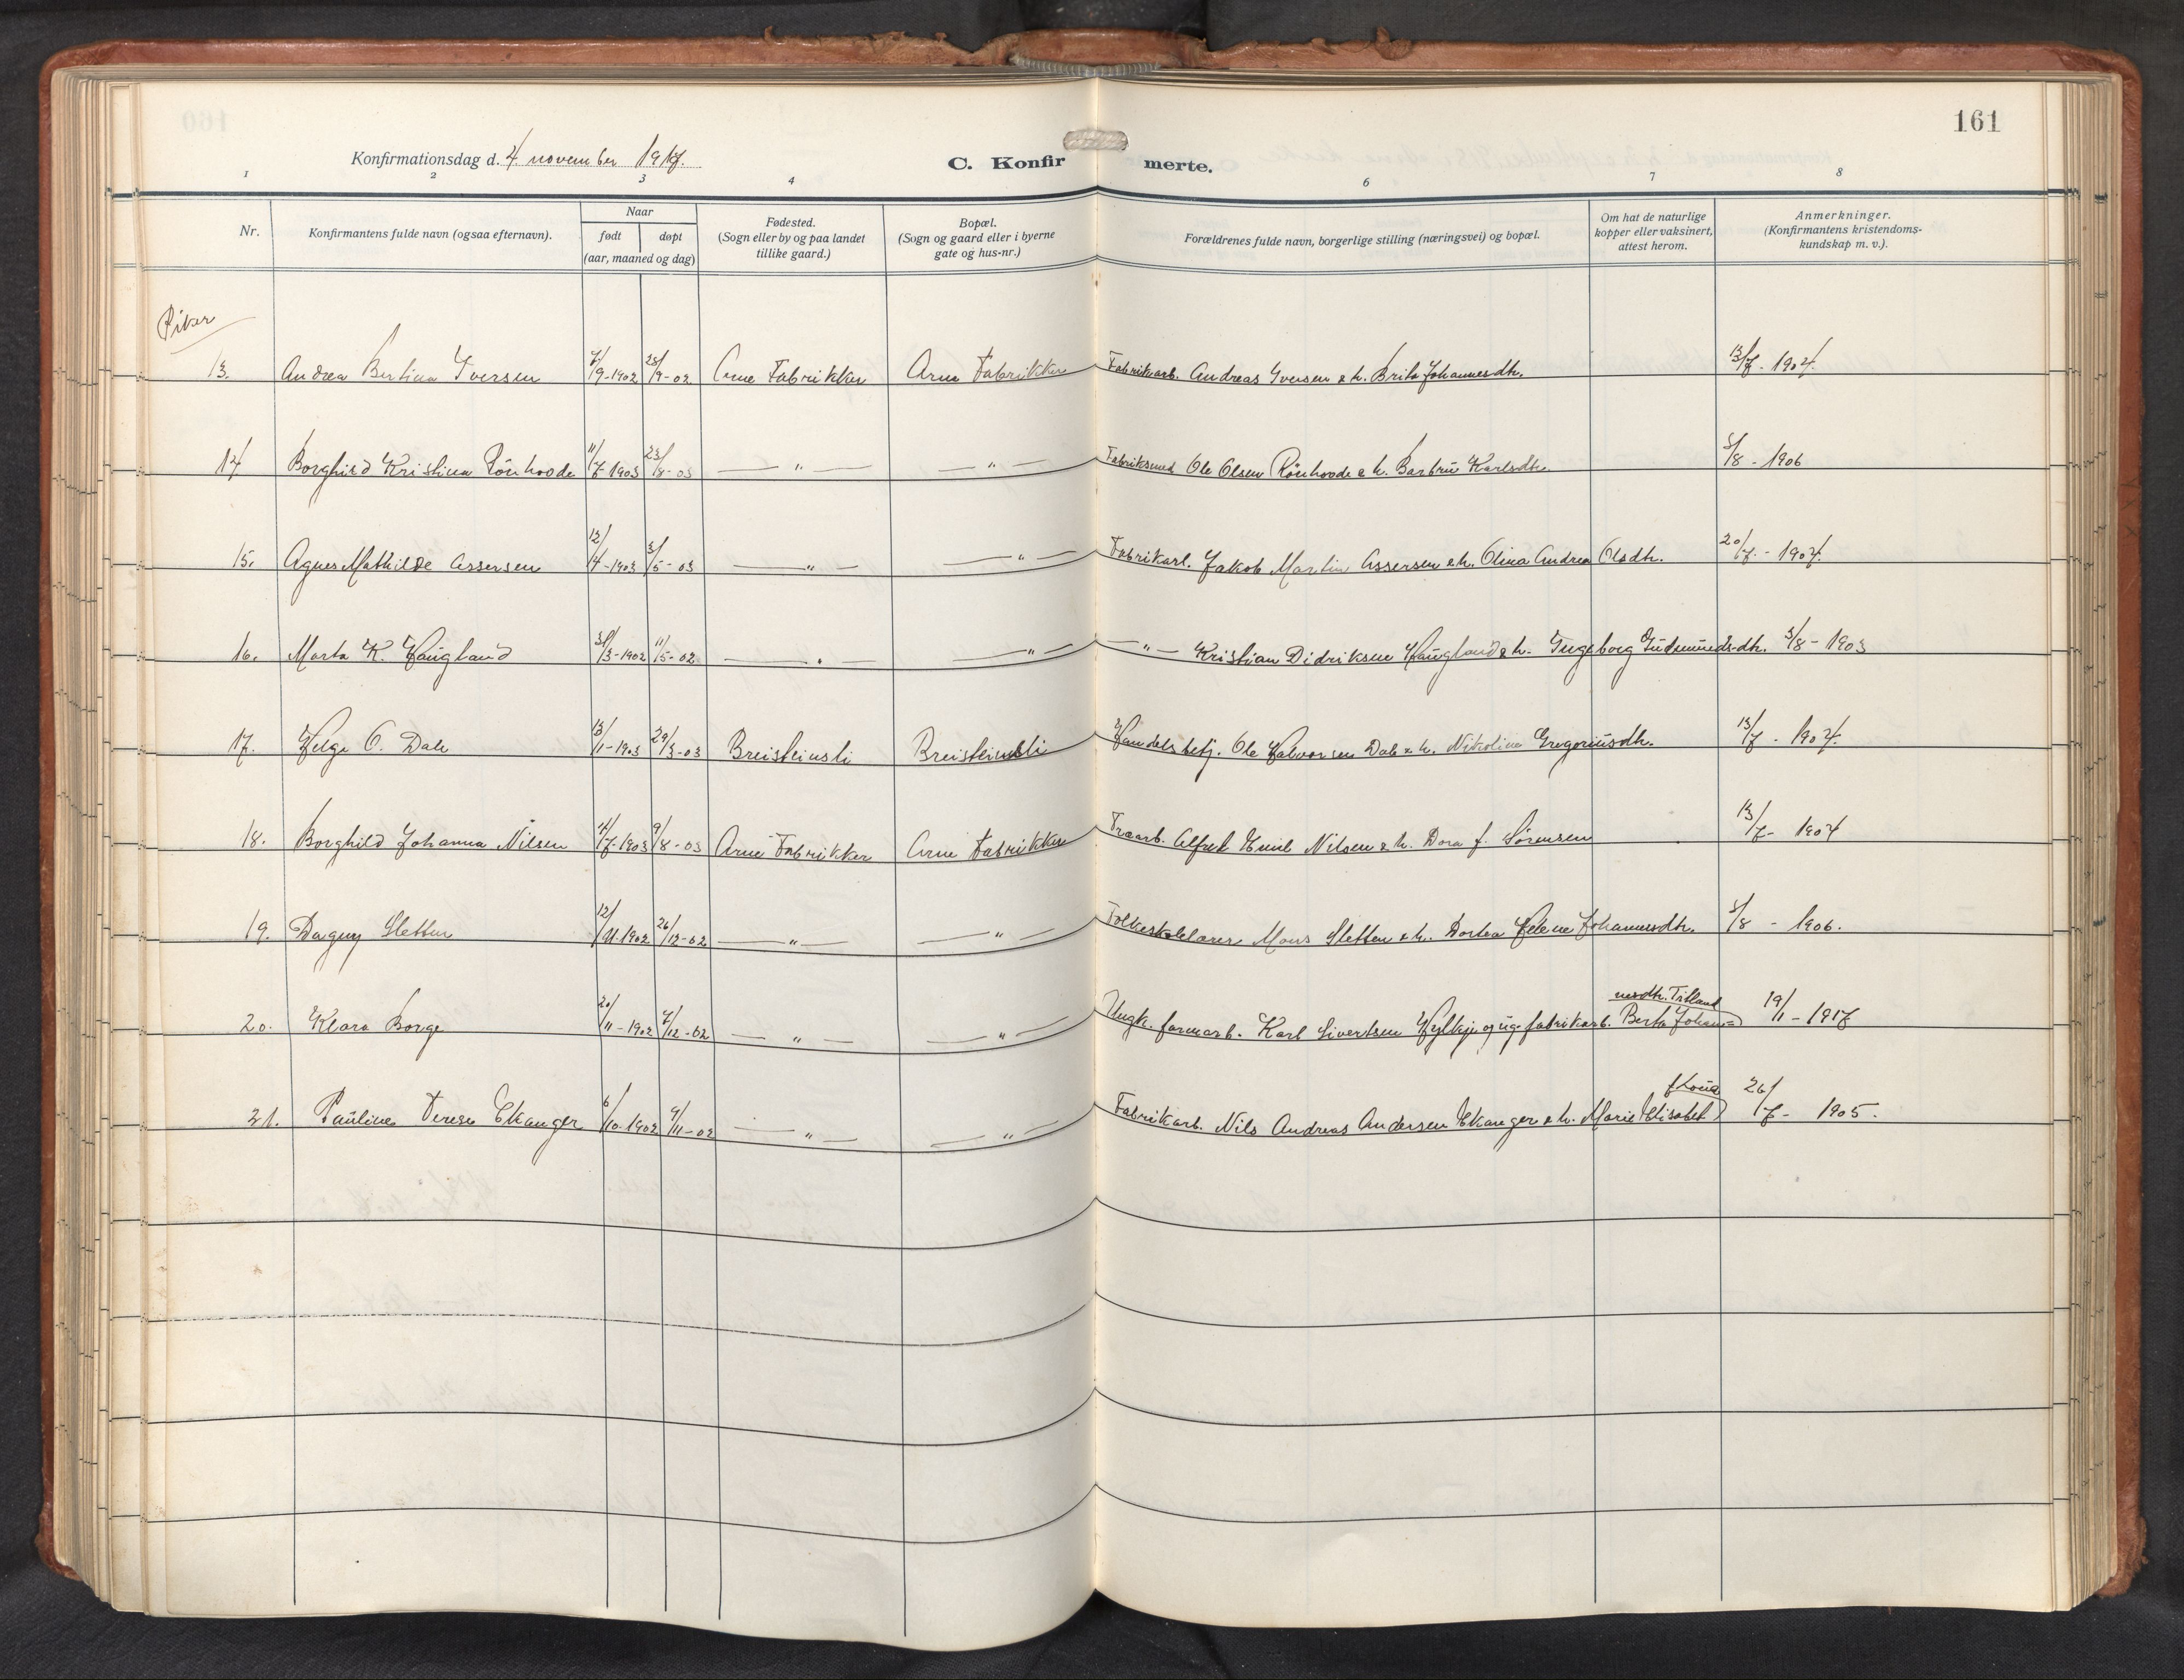 161
Konfirmationsdag d. 4 november 1917.
C. Konfirmerte.
1 2 3 4 6 7 8
Nr.
Konfirmantens fulde navn (ogsaa efternavn).
Naar
født døpt
(aar, maaned og dag)
Fødested.
(Sogn eller by og paa landet
tillike gaard.)
Bopæl.
(Sogn og gaard eller i byerne
gate og hus-nr.)
Forældrenes fulde navn, borgerlige stilling (næringsvei) og bopæl.
Om hat de naturlige
kopper eller vaksinert,
attest herom.
Anmerkninger.
(Konfirmantens kristendoms-
kundskap m. v.).
Piker
13. Andrea Bertina Iversen 7/9-1902 28/9-02 Arne Fabrikker Arne Fabrikker Fabrikarb. Andreas Iversen & h. Brita Johannesdtr. 13/7 - 1904.
14 Borghild Kristina Rönhovde 11/7-1903 23/8-03 — " — — " — Fabriksmed Ole Olsen Rönhovde & h. Barbru Karlsdtr. 5/8 - 1906
15. Agnes Mathilde Assersen 12/4-1903 3/5-03 — " — — " — Fabrikarb. Jakob Martin Assersen & h. Olina Andrea Olsdtr. 20/7 - 1904.
16. Marta K. Haugland 31/3-1902 11/5-02 — " — — " — — " — Kristian Didriksen Haugland & h. Ingeborg Gudmundsdtr. 3/8 - 1903
17. Helga O. Dale 13/1-1903 29/3-03 Breisteinsli Breisteinsli Handelsbetj. Ole Halvorsen Dale & h. Nikolina Gregoriusdtr. 13/7 - 1904.
18. Borghild Johanna Nilsen 4/7-1903 9/8-03 Arne Fabrikker Arne Fabrikker Træarb. Alfred Emil Nilsen & h. Dora f. Sørensen 13/7 - 1904
19. Dagny Sletten 12/11-1902 26/12-02 — " — — " — Folkeskolelærer Mons Sletten & h. Dortea Helene Johannesdtr. 5/8 - 1906.
20. Klara Borge 20/11-1902 7/12-02 — " — — " — Ungk. farmarb. Karl Sivertsen Hylkje og ug. fabrikarb. Berta Johan-
nesdtr. Titland 19/1 - 1917
21. Pauline Terese Ekanger 6/10-1902 9/11-02 — " — — " — Fabrikarb. Nils Andreas Andersen Ekanger & h. Marie Elisabet 26/7 - 1905.